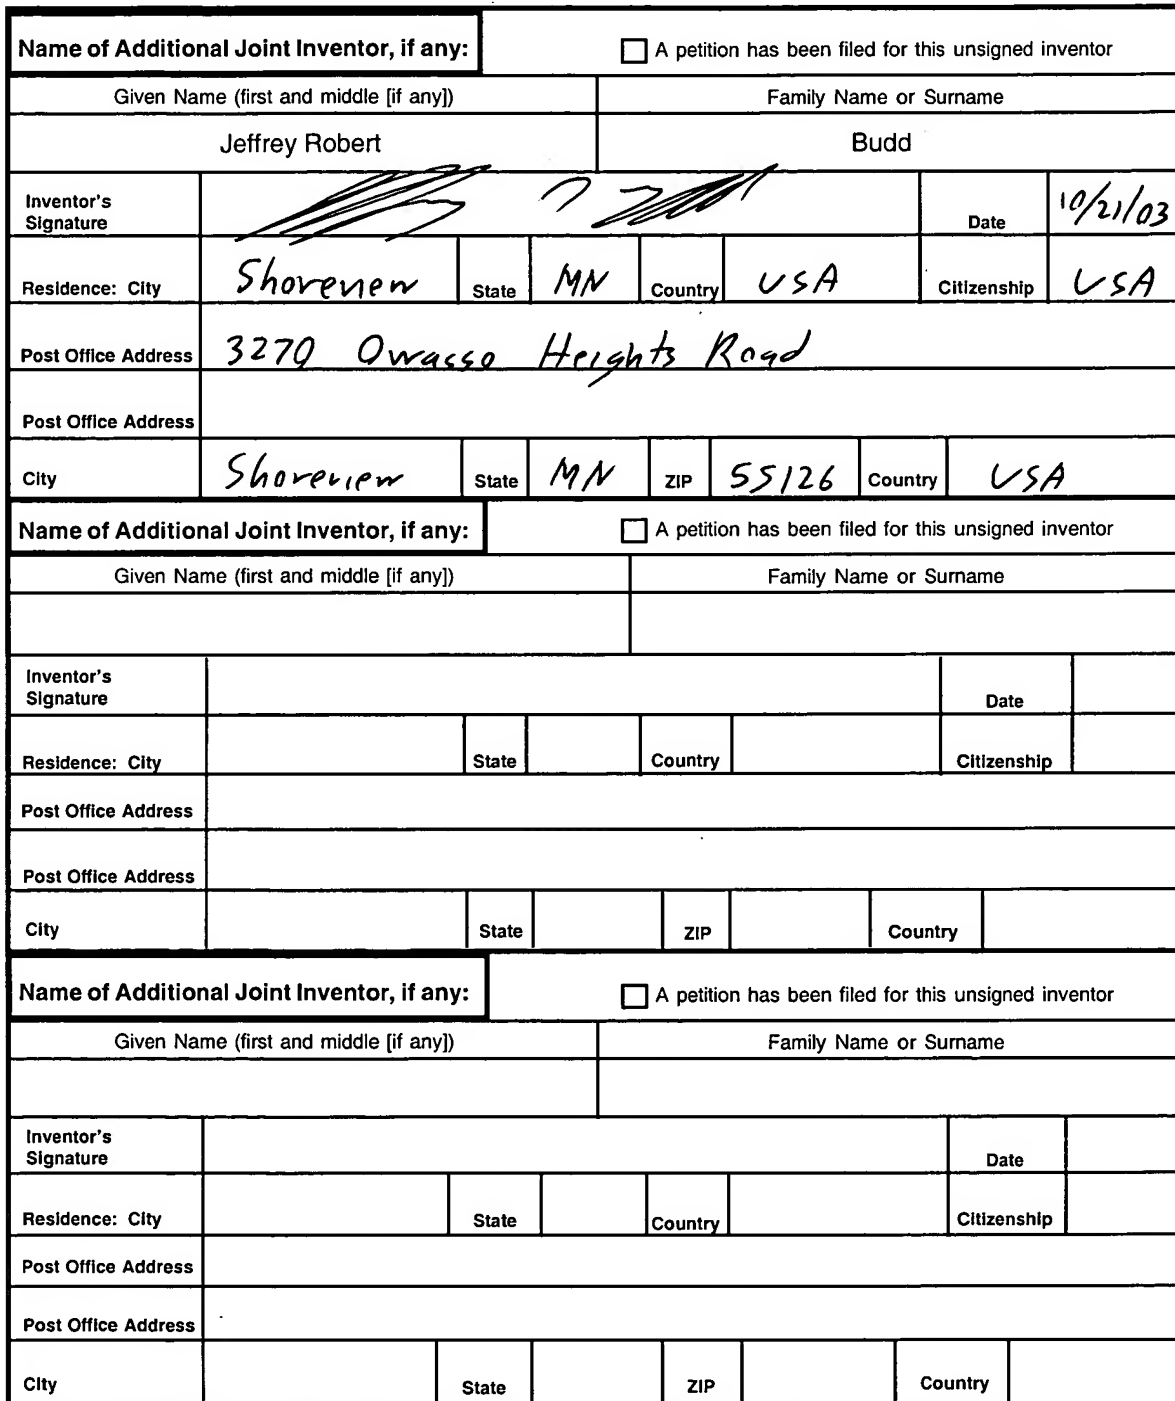 Name of Additional Joint Inventor, if any: A petition has been filed for this unsigned inventor
Given Name (first and middle [if any]) Family Name or Surname
Jeffrey Robert Budd
Inventor's Signature Date 10/21/03
Residence: City Shoreview State MN Country USA Citizenship USA
Post Office Address 3270 Owasso Heights Road
Post Office Address
City Shoreview State MN ZIP 55126 Country USA
Name of Additional Joint Inventor, if any: A petition has been filed for this unsigned inventor
Given Name (first and middle [if any]) Family Name or Surname
Inventor's Signature Date
Residence: City State Country Citizenship
Post Office Address
Post Office Address
City State ZIP Country
Name of Additional Joint Inventor, if any: A petition has been filed for this unsigned inventor
Given Name (first and middle [if any]) Family Name or Surname
Inventor's Signature Date
Residence: City State Country Citizenship
Post Office Address
Post Office Address
City State ZIP Country